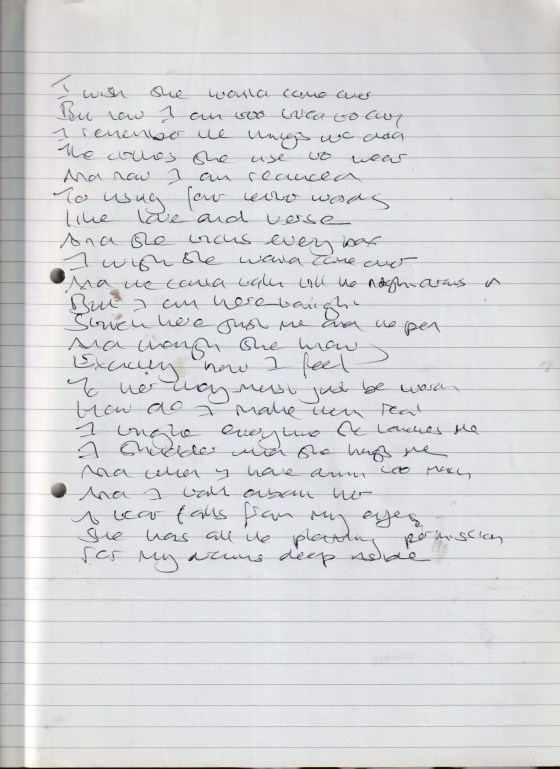 I wish she would come over
But now I am too tired to cry
I remember the things we did
The clothes she use to wear
And now I am reduced
To using four letter words
Like love and verse
And she ticks every box
I wish she would come over
And we could talk till the night
But I am here tonight
Stuck here just me and the pen
And though she knows
Exactly how I feel
To her they must just be words
How do I make them real
I tingle everytime she touches me
I shudder when she hugs me
And when I have drunk too many
And I talk about her
A tear falls from my eyes
She has all the planning permission
For my dreams deep inside